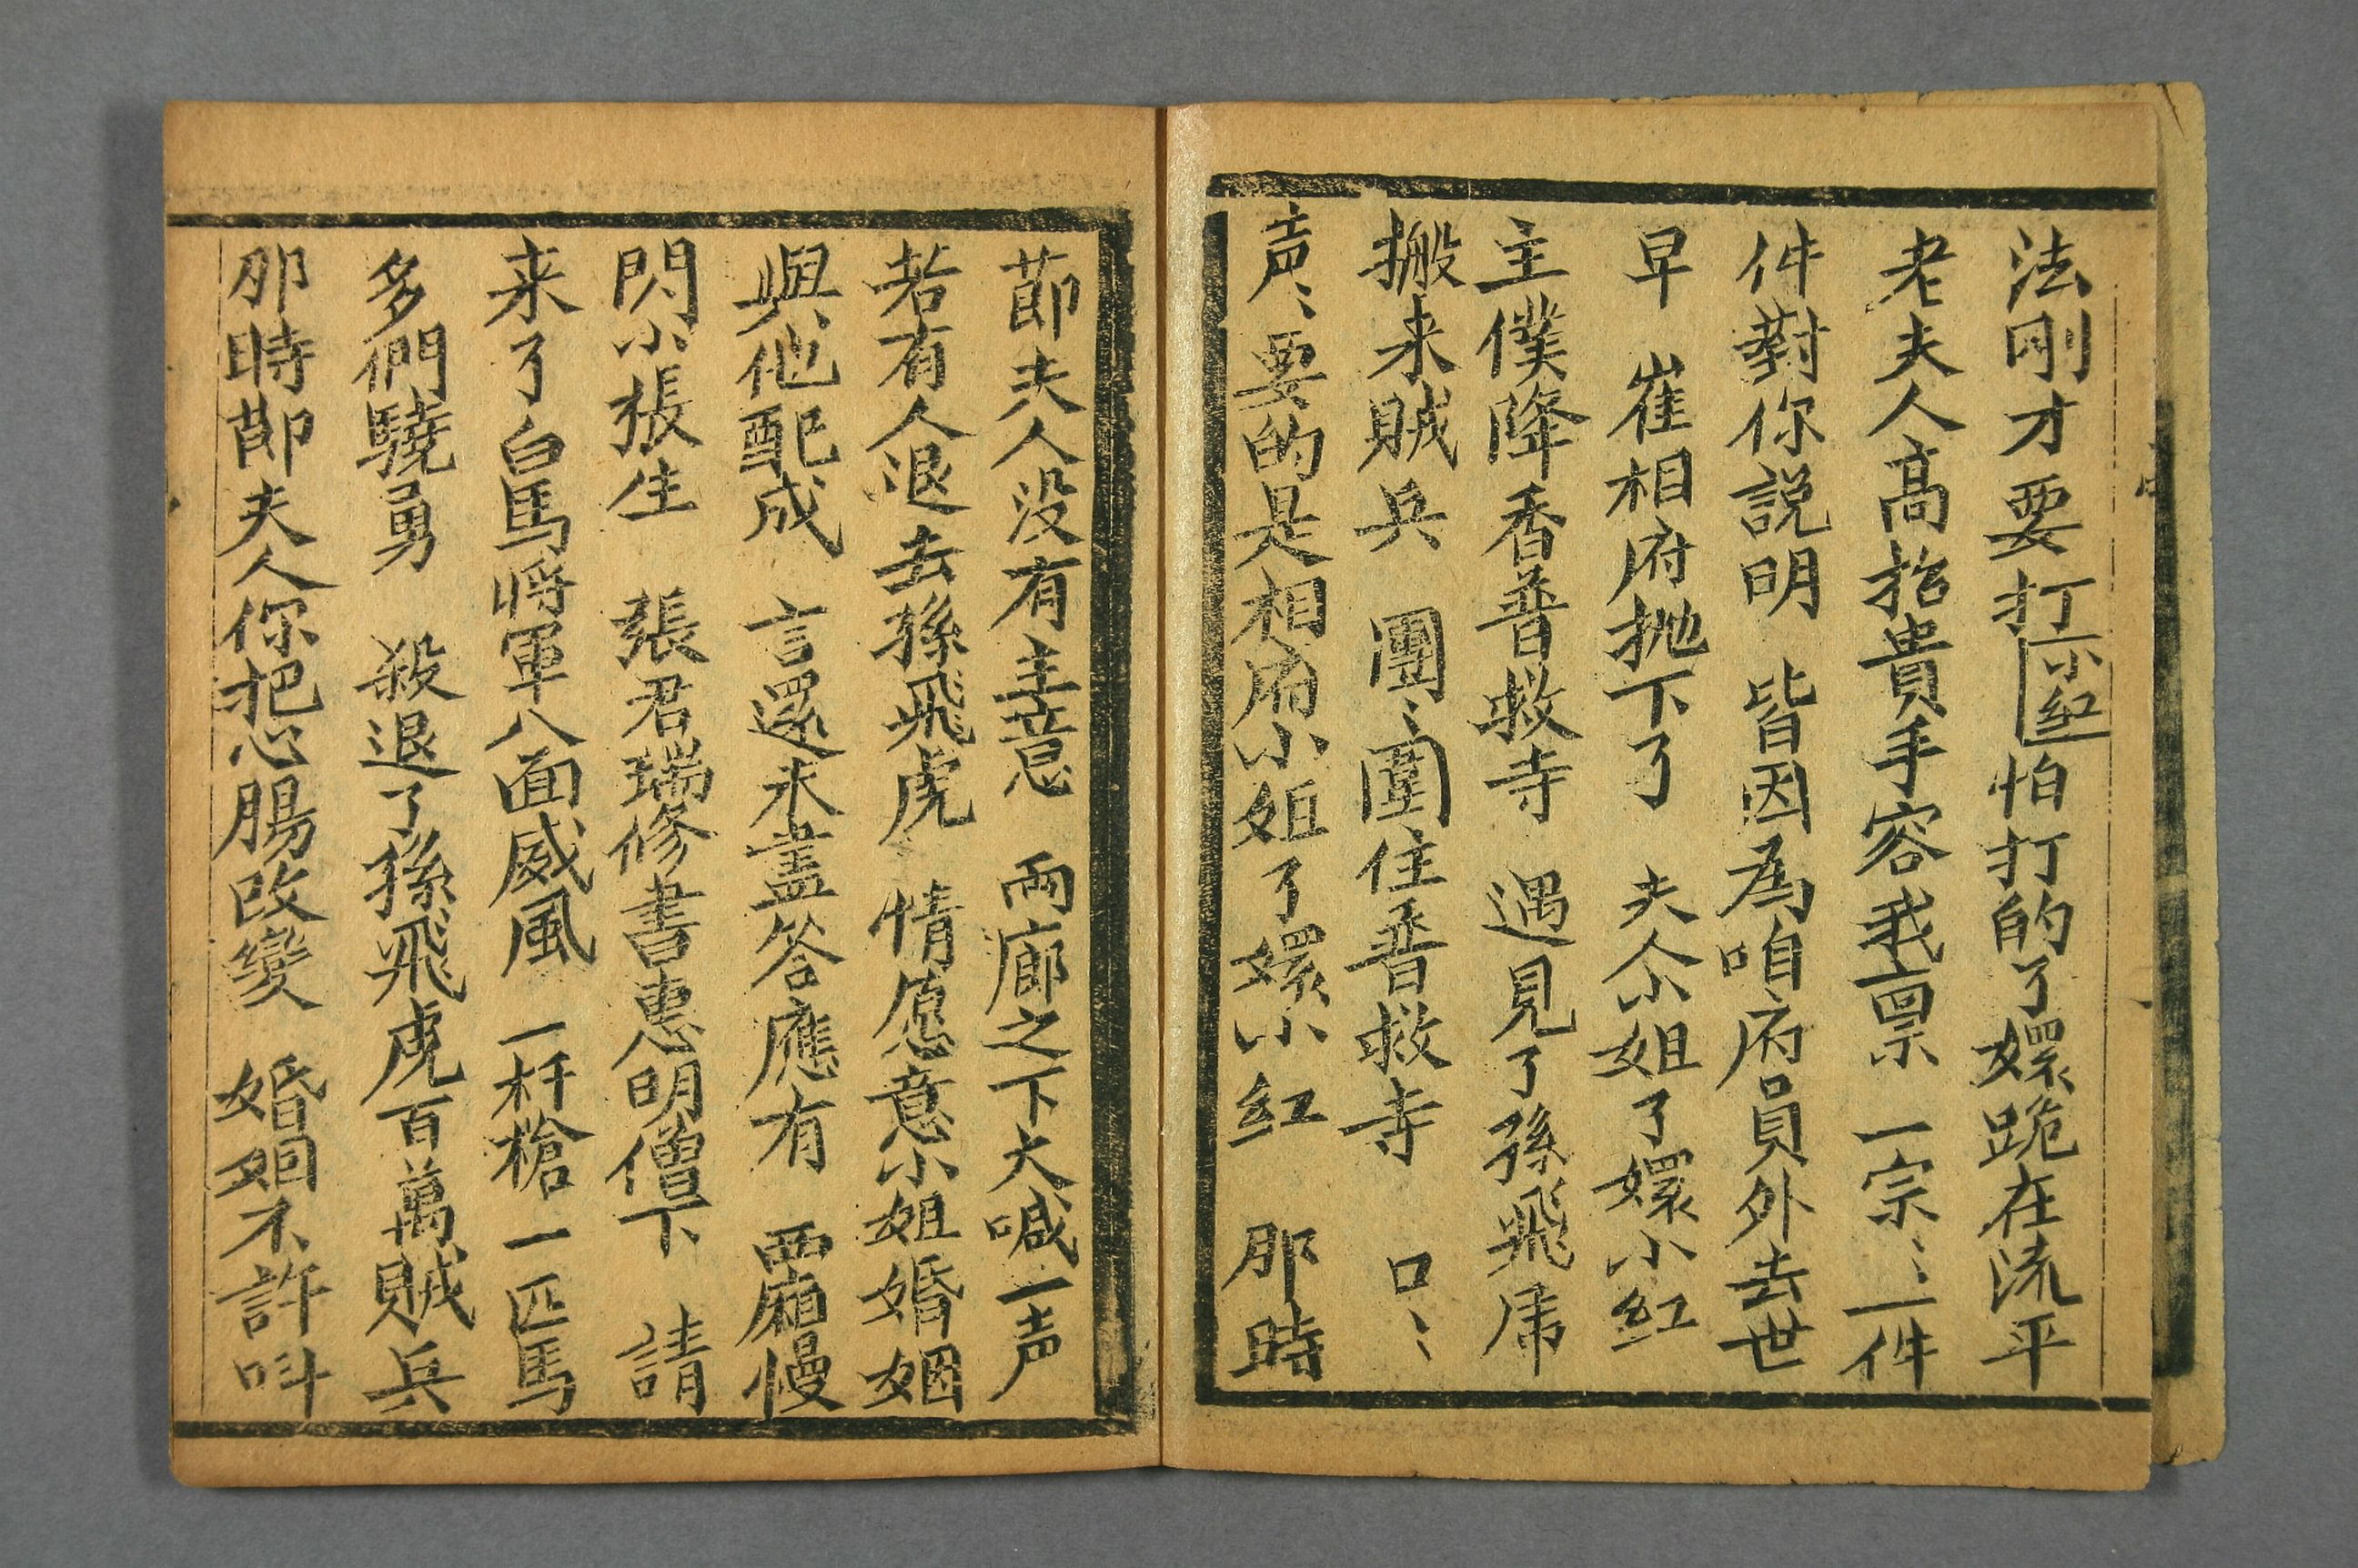 法刚才要打小紅怕打的了嬛跪在流平
老夫人高抬貴手容我禀 一宗〻一件
件對你説明 皆因為咱府員外去世
早 崔相府抛下了 夫人小姐了嬛小紅
主僕降香普救寺 遇見了孫飛虎
搬来賊兵 團〻圍住普救寺 口〻
声〻要的是相府小姐了嬛小紅 那時
節夫人没有主意 両廊之下大喊一声
若有人退去孫飛虎 情愿意小姐婚姻
與他配成 言還未盡答應有 西廂慢
閃小張生 張君瑞修書惠明僧下 請
来了白馬将軍八面威風 一杆槍一匹馬
多們驍勇 殺退了孫飛虎百萬賊兵
那時節夫人你把心腸改變 婚姻不許呌